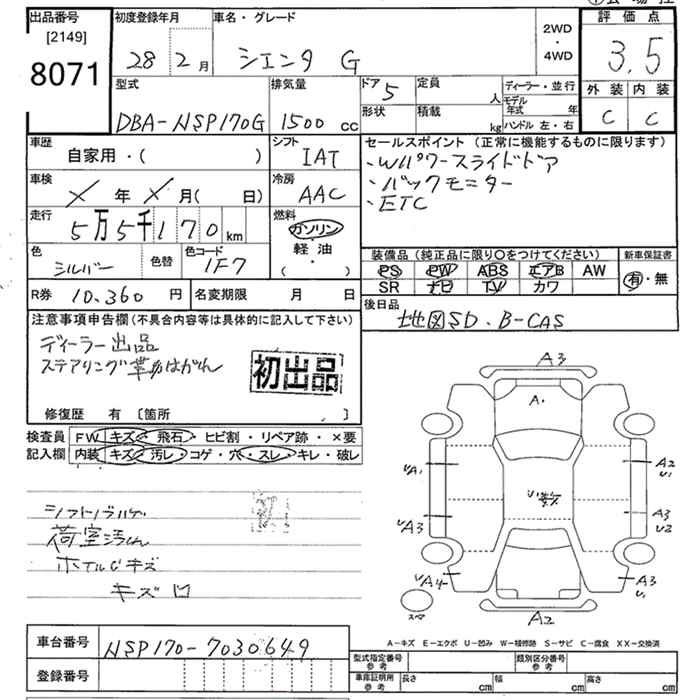 出品番号
[2149]
8071
初度登録年月
28 2月
車名・グレード
シエンタ G
2WD
・
4WD
評価点
3.5
外装 内装
C C
型式
DBA-NSP170G
排気量
1500 cc
ドア 5
形状
定員 人
積載 kg
ディーラー・並行
モデル年式 年
ハンドル 左・右
車歴
自家用・( )
シフト
IAT
車検
X 年 X 月( 日)
冷房
AAC
走行
5万5千170 km
燃料
ガソリン
軽・油
( ・ )
色
シルバー
色替
色コード
1F7
R券 10,360 円
名変期限 月 日
セールスポイント(正常に機能するものに限ります)
・Wパワースライドドア
・バックモニター
・ETC
装備品(純正品に限り○をつけてください)
PS PW ABS エアB AW
SR ナビ TV カワ
新車保証書
有・無
後日品
地図SD、B-CAS
注意事項申告欄(不具合内容等は具体的に記入して下さい)
ディーラー出品
ステアリング革はがれ
初出品
修復歴 有 〔箇所 〕
検査員 FW キズ・飛石・ヒビ割・リペア跡・×要
記入欄 内装 キズ・汚レ・コゲ・穴・スレ・キレ・破レ
シフトノブハゲ
荷室汚れ
ホイルCキズ
キズ凹
A3
A1
UA1
A2
U1
UA3
A3
U2
UA4
A3
U1
スペア
A2
A-キズ E-エクボ U-凹み W-補修跡 S-サビ C-腐食 XX-交換済
車台番号 NSP170-7030649
登録番号
型式指定番号
参考
類別区分番号
参考
車庫証明用
参考
長さ cm
幅 cm
高さ cm